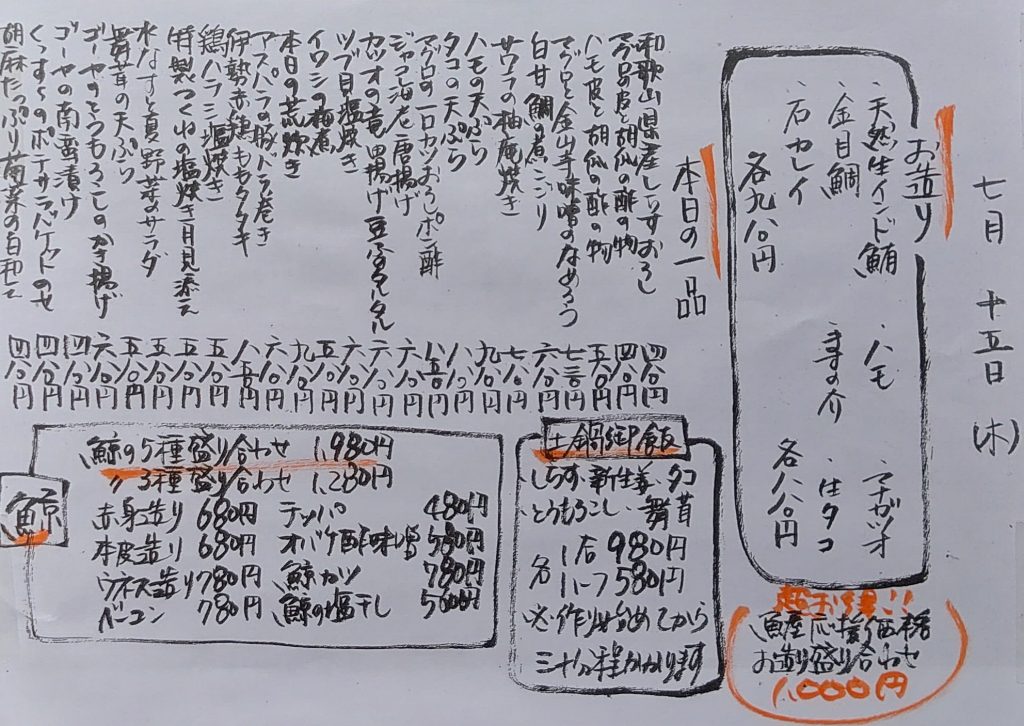 七月 十五日 (木)
お造り
・天然生インド鮪 ・ハモ ・マナガツオ
・金目鯛 の介 ・生タコ
・石カレイ
各九八〇円 各八八〇円
超お得!!
魚産応援価格
お造り盛り合わせ
1,000円
本日の一品
和歌山県産しらすおろし 四八〇円
マグロ皮と胡瓜の酢の物 四八〇円
ハモ皮と胡瓜の酢の物 五八〇円
マグロと金山寺味噌のなめろう 七三〇円
白甘鯛の煮こごり 六八〇円
サワラの柚庵焼き 七八〇円
ハモの天ぷら 九八〇円
タコの天ぷら 八八〇円
マグロの一口カツおろしポン酢 八五〇円
ジャコ海老唐揚げ 六八〇円
カツオの竜田揚げ 豆ふタルタル 六八〇円
ツブ貝塩焼き 六八〇円
イワシの梅煮 五八〇円
本日の荒炊き 九八〇円
アスパラの豚バラ巻き 六八〇円
伊勢赤鶏ももタタキ 八五〇円
鶏ハラミ塩焼き 五八〇円
特製つくねの塩焼き月見添え 五八〇円
水なすと真野菜のサラダ 五八〇円
舞茸の天ぷら 五八〇円
ゴーヤのとうもろこしのかき揚げ 六八〇円
ゴーヤの南蛮漬け 四八〇円
くっす〜のポテサラバケットのせ 四八〇円
胡麻たっぷり菊菜の白和え 四八〇円
土鍋御飯
・しらす・新生姜・タコ
・とうもろこし・舞茸
各 1合 980円
ハーフ 580円
※作り始めてから
三十分程かかります
鯨
鯨の5種盛り合わせ 1,980円
〃 3種盛り合わせ 1,280円
赤身造り 680円 テッパ 480円
本皮造り 680円 オバケ酢味噌 580円
ウネス造り 780円 鯨カツ 780円
ベーコン 780円 鯨の塩干し 500円